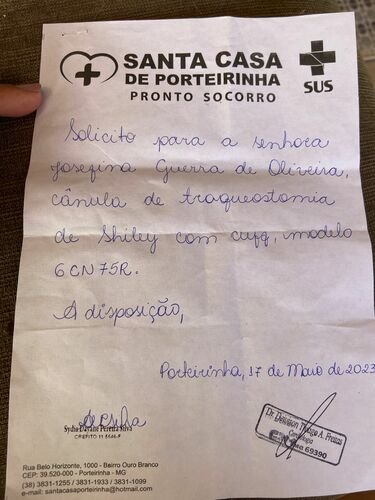 SANTA CASA
DE PORTEIRINHA
PRONTO SOCORRO
SUS
Solicito para a senhora
Josefina Guerra de Oliveira,
cânula de traqueostomia
de Shiley com cuff, modelo
6CN75R.
A disposição,
Porteirinha, 17 de Maio de 2023
Pereira Silva
CREFITO
Dr.
69390
Rua Belo Horizonte, 1000 - Bairro Ouro Branco
CEP: 39.520-000 - Porteirinha - MG
(38) 3831-1255 / 3831-1933 / 3831-1099
e-mail: santacasaporteirinha@hotmail.com